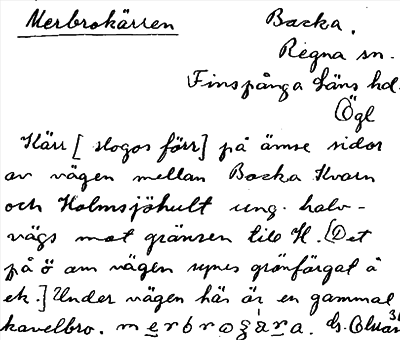 Merbrokärren
Backa.
Regna sn.
Finspånga läns hd.
Ögl
Kärr [slogos förr] på ömse sidor
av vägen mellan Backa Kvarn
och Holmsjöhult ung. halv-
vägs mot gränsen till H. [Det
på ö om vägen synes grönfärgat å
ek.] Under vägen här är en gammal
kavelbro.